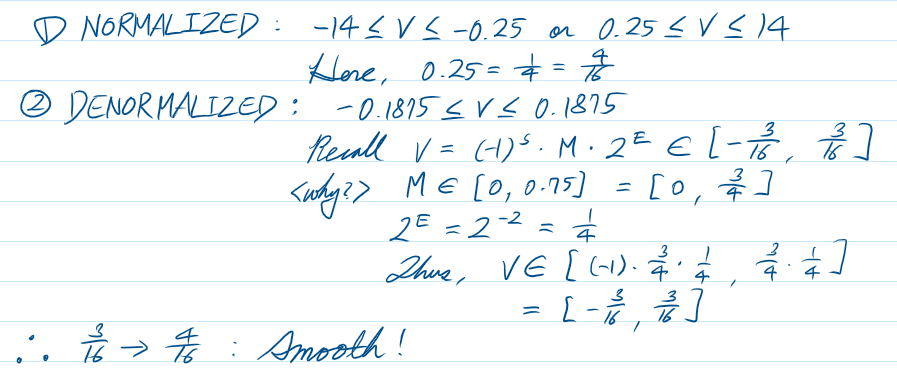 ① NORMALIZED : -14 ≤ V ≤ -0.25 or 0.25 ≤ V ≤ 14
Here, 0.25 = 1/4 = 4/16
② DENORMALIZED : -0.1875 ≤ V ≤ 0.1875
Recall V = (-1)^s · M · 2^E ∈ [-3/16, 3/16]
<why?> M ∈ [0, 0.75] = [0, 3/4]
2^E = 2^-2 = 1/4
Thus, V ∈ [(-1) · 3/4 · 1/4, 3/4 · 1/4]
= [-3/16, 3/16]
∴ 3/16 → 4/16 : Smooth!